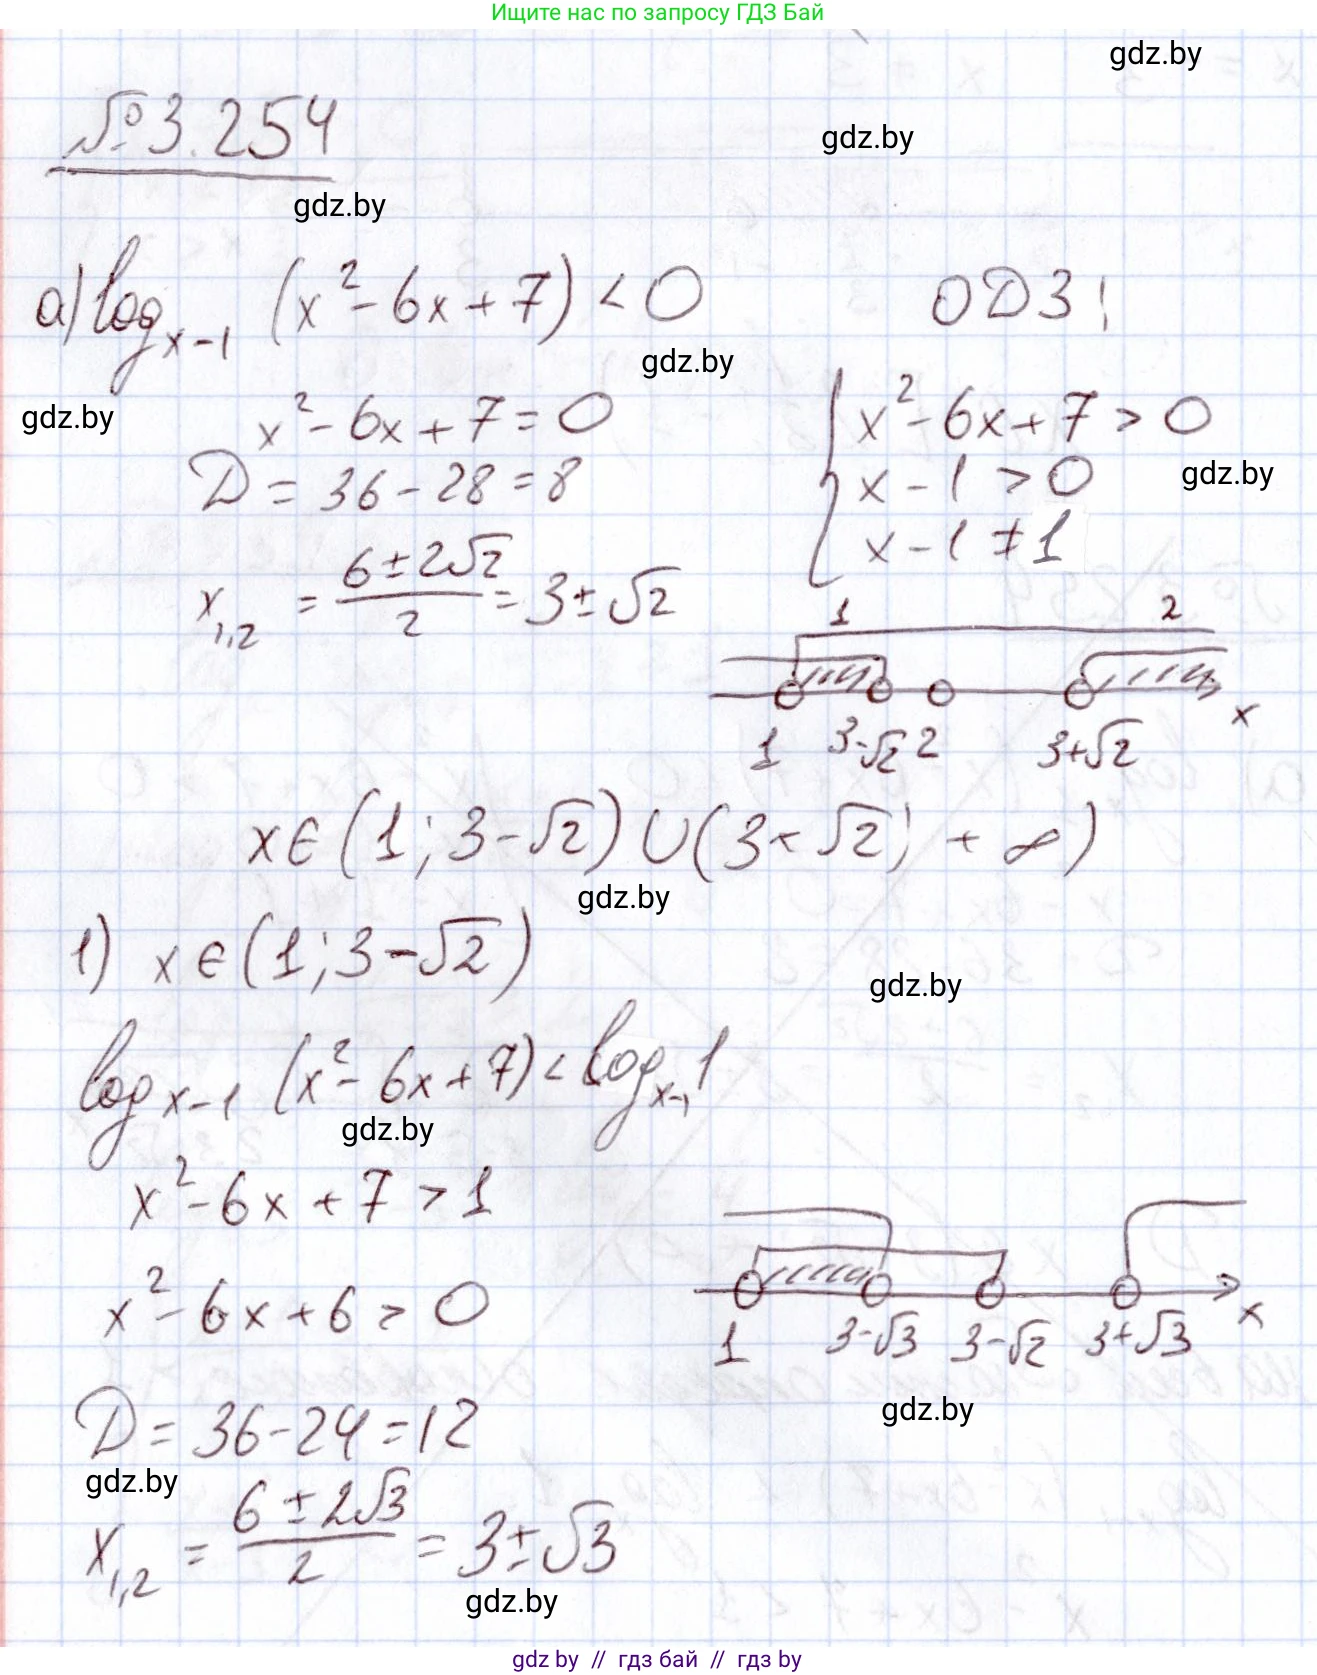 Ищите нас по запросу ГДЗ Бай
gdz.by
№3.254
gdz.by
gdz.by
а) log_{x-1} (x² - 6x + 7) < 0
ОДЗ!
gdz.by
gdz.by
x² - 6x + 7 = 0
D = 36 - 28 = 8
x_{1,2} = (6 ± 2√2)/2 = 3 ± √2
{ x² - 6x + 7 > 0
x - 1 > 0
x - 1 ≠ 1
gdz.by
1 2
1 3-√2 2 3+√2 x
x ∈ (1; 3 - √2) ∪ (3 + √2; + ∞)
gdz.by
1) x ∈ (1; 3 - √2)
gdz.by
log_{x-1} (x² - 6x + 7) < log_{x-1} 1
gdz.by
x² - 6x + 7 > 1
x² - 6x + 6 > 0
1 3-√3 3-√2 3+√3 x
gdz.by
D = 36 - 24 = 12
gdz.by
x_{1,2} = (6 ± 2√3)/2 = 3 ± √3
gdz.by
gdz by // гдз бай // гдз by